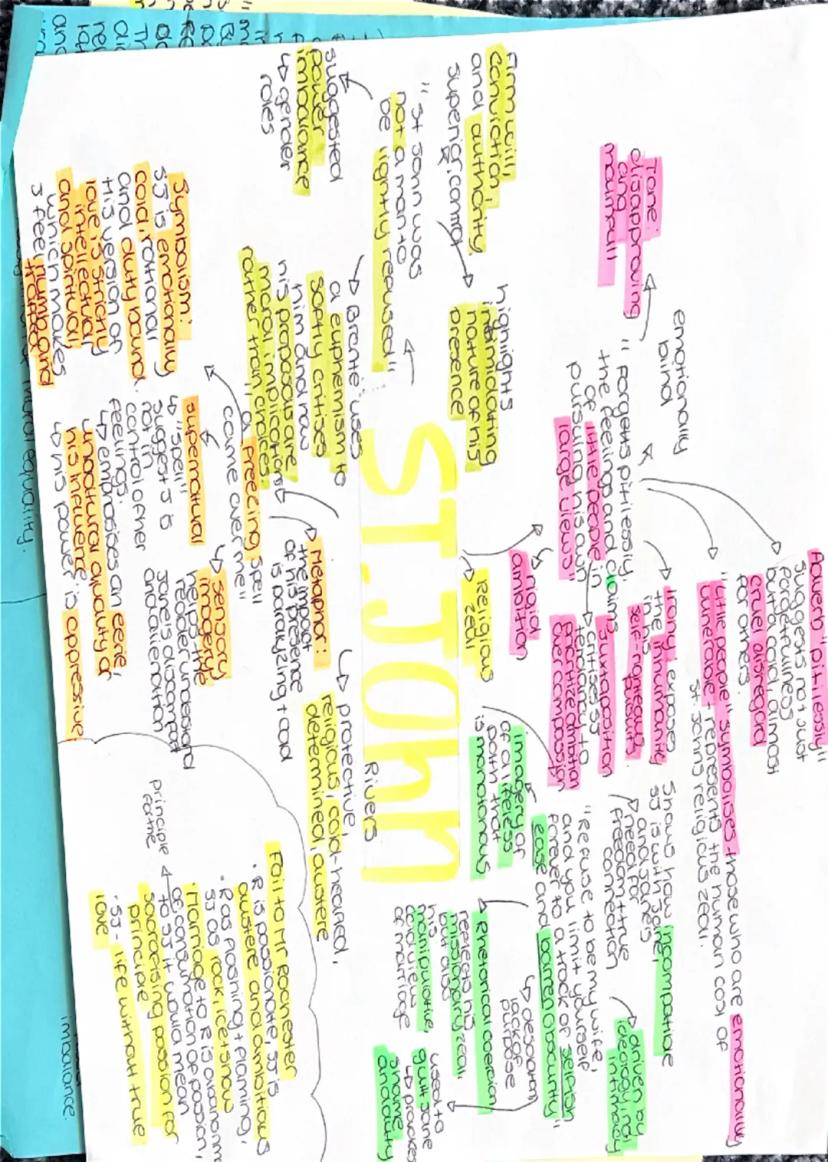 ST. JOHN
Rivers
↳ protective,
religious, cold-hearted,
determined, austere
Firm will,
conviction,
and authority
superior control
highlights
intimidating
nature of his
presence
"St John was
not a man to
be lightly refused"
suggested
power
imbalance
↳ gender
roles
↳ Bronte uses
a euphemism to
softly critises
him and how
his proposals are
moral implications
rather than choices
Tone:
disapproving
and
mournful
emotionally
blind
"Forgets pitilessly,
the feelings and claims
of little people in
pursuing his own
large views"
Adverb: "pitilessly"
suggests not just
forgetfulness
but a cold, almost
cruel disregard
for others.
"little people" symbolises those who are emotionally
vunerable, represents the human cost of
St. Johns religious zeal.
Irony: exposes
the inhumanity
in his
self-righteous
Juxtaposition
critises SJ
tendancy to
prioritize ambition
over compassion
rigid
ambition
religious
zeal
Shows how incompatible
SJ is with Jane,
and Jane's
need for
freedom + true
connection
driven by
ideology not
intimacy
"Refuse to be my wife,
and you limit yourself
forever to a track of selfish
ease and barren obscurity"
↳ desolation
lack of
purpose
imagery
of a lifeless
path that
is monotonous
Rhetorical coersion
reflects his
missionary zeal
but also
his
manipulative,
cold views
of marriage
used to
guilt Jane
↳ provokes
shame
and duty
"a freezing spell
came over me"
Metaphor:
the impact
of his presence
is paralyzing + cold
sensory
imagery
help the
reader understand
Jane's discomfort
and alienation
supernatural
↳ "spell"
suggests J is
not in
control of her
feelings.
↳ emphasises an eerie,
unnatural quality of
his influence
↳ his power is oppressive
Symbolism:
SJ is emotionally
cold, rational
and duty bound.
His version of
love is strictly
intellectual
and spiritual
which makes
J feel numb and
trapped
Foil to Mr Rochester
• R is passionate, SJ is
austere and ambitious
• R as flashing + flaming,
SJ as rock, ice + snow
• Marriage to R is
of consumation of passion,
to SJ it would mean
sacrificing passion for
principle
• SJ - life without true
love
principle
moral equality.
imbalance.